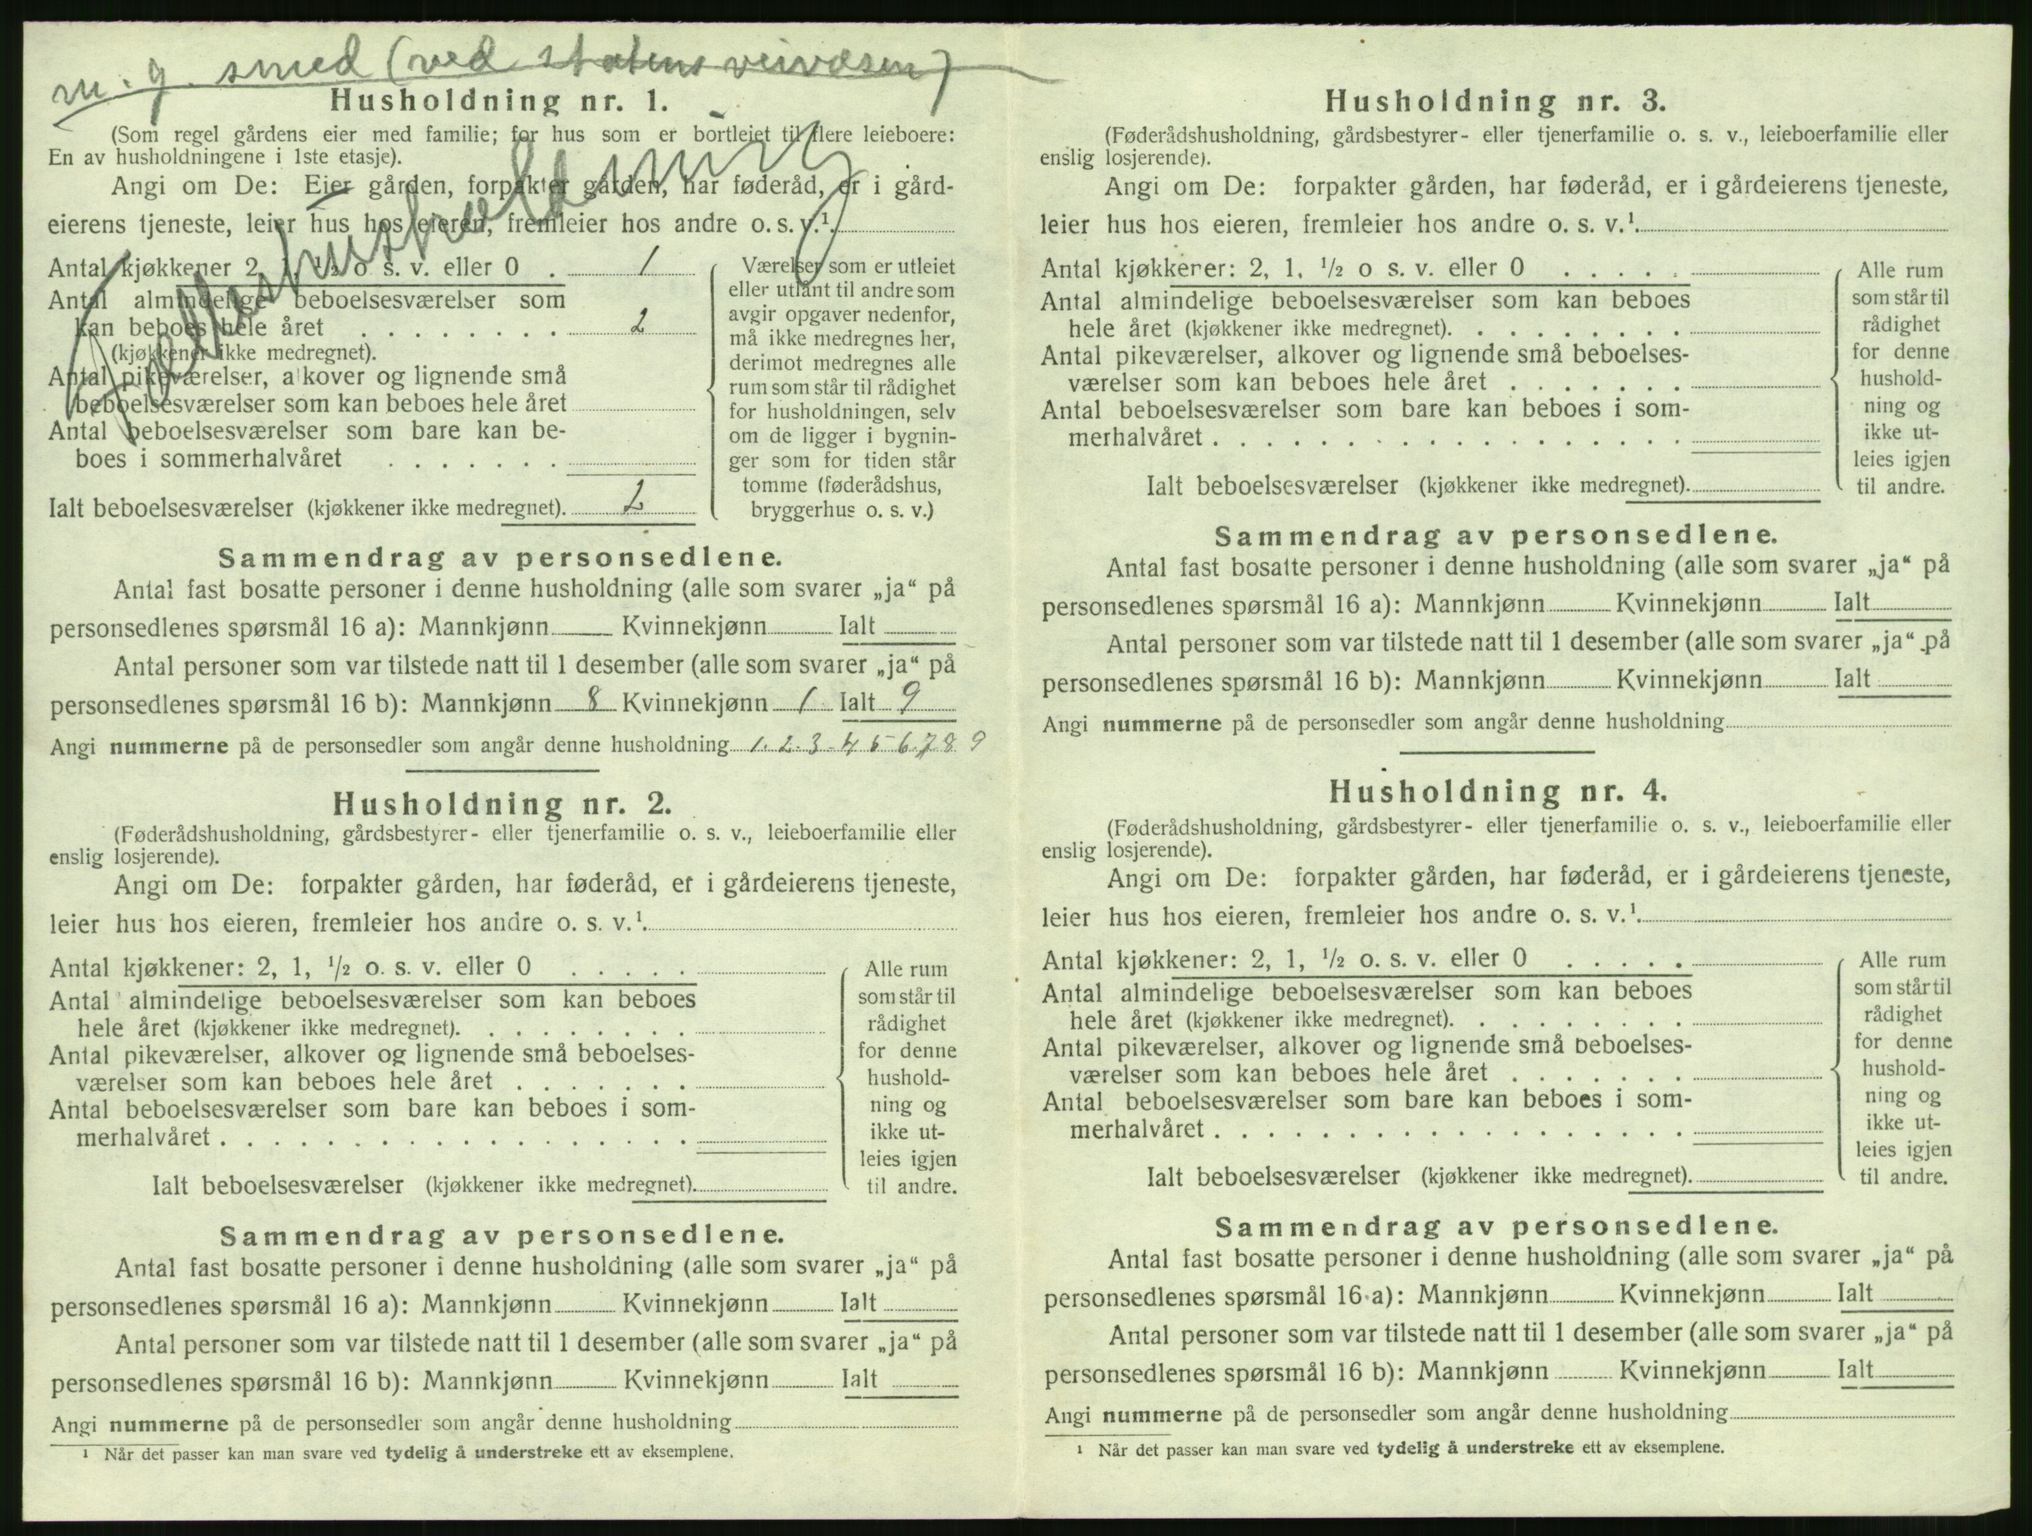 m. g. smed (ved statens veivæsen)
Husholdning nr. 1.
(Som regel gårdens eier med familie; for hus som er bortleiet til flere leieboere:
En av husholdningene i 1ste etasje).
Fælleshusholdning
Angi om De: Eier gården, forpakter gården, har føderåd, er i gård-
eierens tjeneste, leier hus hos eieren, fremleier hos andre o. s. v.¹.
Antal kjøkkener 2, 1, ½ o s. v. eller 0 . 1
Antal almindelige beboelsesværelser som
kan beboes hele året . . . . . . . . 2
(kjøkkener ikke medregnet).
Antal pikeværelser, alkover og lignende små
beboelsesværelser som kan beboes hele året
Antal beboelsesværelser som bare kan be-
boes i sommerhalvåret . . . . . . .
Ialt beboelsesværelser (kjøkkener ikke medregnet). 2
Værelser som er utleiet
eller utlånt til andre som
avgir opgaver nedenfor,
må ikke medregnes her,
derimot medregnes alle
rum som står til rådighet
for husholdningen, selv
om de ligger i bygnin-
ger som for tiden står
tomme (føderådshus,
bryggerhus o. s. v.)
Sammendrag av personsedlene.
Antal fast bosatte personer i denne husholdning (alle som svarer „ja“ på
personsedlenes spørsmål 16 a): Mannkjønn Kvinnekjønn Ialt
Antal personer som var tilstede natt til 1 desember (alle som svarer „ja“ på
personsedlenes spørsmål 16 b): Mannkjønn 8 Kvinnekjønn 1 Ialt 9
Angi nummerne på de personsedler som angår denne husholdning 1. 2. 3. 4 5 6. 7 8 9
Husholdning nr. 2.
(Føderådshusholdning, gårdsbestyrer- eller tjenerfamilie o. s. v., leieboerfamilie eller
enslig losjerende).
Angi om De: forpakter gården, har føderåd, er i gårdeierens tjeneste,
leier hus hos eieren, fremleier hos andre o. s. v.¹.
Antal kjøkkener: 2, 1, ½ o. s. v. eller 0 . . . . .
Antal almindelige beboelsesværelser som kan beboes
hele året (kjøkkener ikke medregnet). . . . . . . . .
Antal pikeværelser, alkover og lignende små beboelses-
værelser som kan beboes hele året . . . . . . .
Antal beboelsesværelser som bare kan beboes i som-
merhalvåret . . . . . . . . . . . . . . . . . .
Ialt beboelsesværelser (kjøkkener ikke medregnet).
Alle rum
som står til
rådighet
for denne
hushold-
ning og
ikke ut-
leies igjen
til andre.
Sammendrag av personsedlene.
Antal fast bosatte personer i denne husholdning (alle som svarer „ja“ på
personsedlenes spørsmål 16 a): Mannkjønn Kvinnekjønn Ialt
Antal personer som var tilstede natt til 1 desember (alle som svarer „ja“ på
personsedlenes spørsmål 16 b): Mannkjønn Kvinnekjønn Ialt
Angi nummerne på de personsedler som angår denne husholdning
¹ Når det passer kan man svare ved tydelig å understreke ett av eksemplene.
Husholdning nr. 3.
(Føderådshusholdning, gårdsbestyrer- eller tjenerfamilie o. s. v., leieboerfamilie eller
enslig losjerende).
Angi om De: forpakter gården, har føderåd, er i gårdeierens tjeneste,
leier hus hos eieren, fremleier hos andre o. s. v.¹.
Antal kjøkkener: 2, 1, ½ o s. v. eller 0 . . . . .
Antal almindelige beboelsesværelser som kan beboes
hele året (kjøkkener ikke medregnet). . . . . . . . .
Antal pikeværelser, alkover og lignende små beboelses-
værelser som kan beboes hele året . . . . . . .
Antal beboelsesværelser som bare kan beboes i som-
merhalvåret . . . . . . . . . . . . . . . . . .
Ialt beboelsesværelser (kjøkkener ikke medregnet).
Alle rum
som står til
rådighet
for denne
hushold-
ning og
ikke ut-
leies igjen
til andre.
Sammendrag av personsedlene.
Antal fast bosatte personer i denne husholdning (alle som svarer „ja“ på
personsedlenes spørsmål 16 a): Mannkjønn Kvinnekjønn Ialt
Antal personer som var tilstede natt til 1 desember (alle som svarer „ja“ på
personsedlenes spørsmål 16 b): Mannkjønn Kvinnekjønn Ialt
Angi nummerne på de personsedler som angår denne husholdning
Husholdning nr. 4.
(Føderådshusholdning, gårdsbestyrer- eller tjenerfamilie o. s. v., leieboerfamilie eller
enslig losjerende).
Angi om De: forpakter gården, har føderåd, er i gårdeierens tjeneste,
leier hus hos eieren, fremleier hos andre o. s. v.¹.
Antal kjøkkener: 2, 1, ½ o. s. v. eller 0 . . . . .
Antal almindelige beboelsesværelser som kan beboes
hele året (kjøkkener ikke medregnet). . . . . . . . .
Antal pikeværelser, alkover og lignende små beboelses-
værelser som kan beboes hele året . . . . . . .
Antal beboelsesværelser som bare kan beboes i som-
merhalvåret . . . . . . . . . . . . . . . . . .
Ialt beboelsesværelser (kjøkkener ikke medregnet).
Alle rum
som står til
rådighet
for denne
hushold-
ning og
ikke ut-
leies igjen
til andre.
Sammendrag av personsedlene.
Antal fast bosatte personer i denne husholdning (alle som svarer „ja“ på
personsedlenes spørsmål 16 a): Mannkjønn Kvinnekjønn Ialt
Antal personer som var tilstede natt til 1 desember (alle som svarer „ja“ på
personsedlenes spørsmål 16 b): Mannkjønn Kvinnekjønn Ialt
Angi nummerne på de personsedler som angår denne husholdning
¹ Når det passer kan man svare ved tydelig å understreke ett av eksemplene.